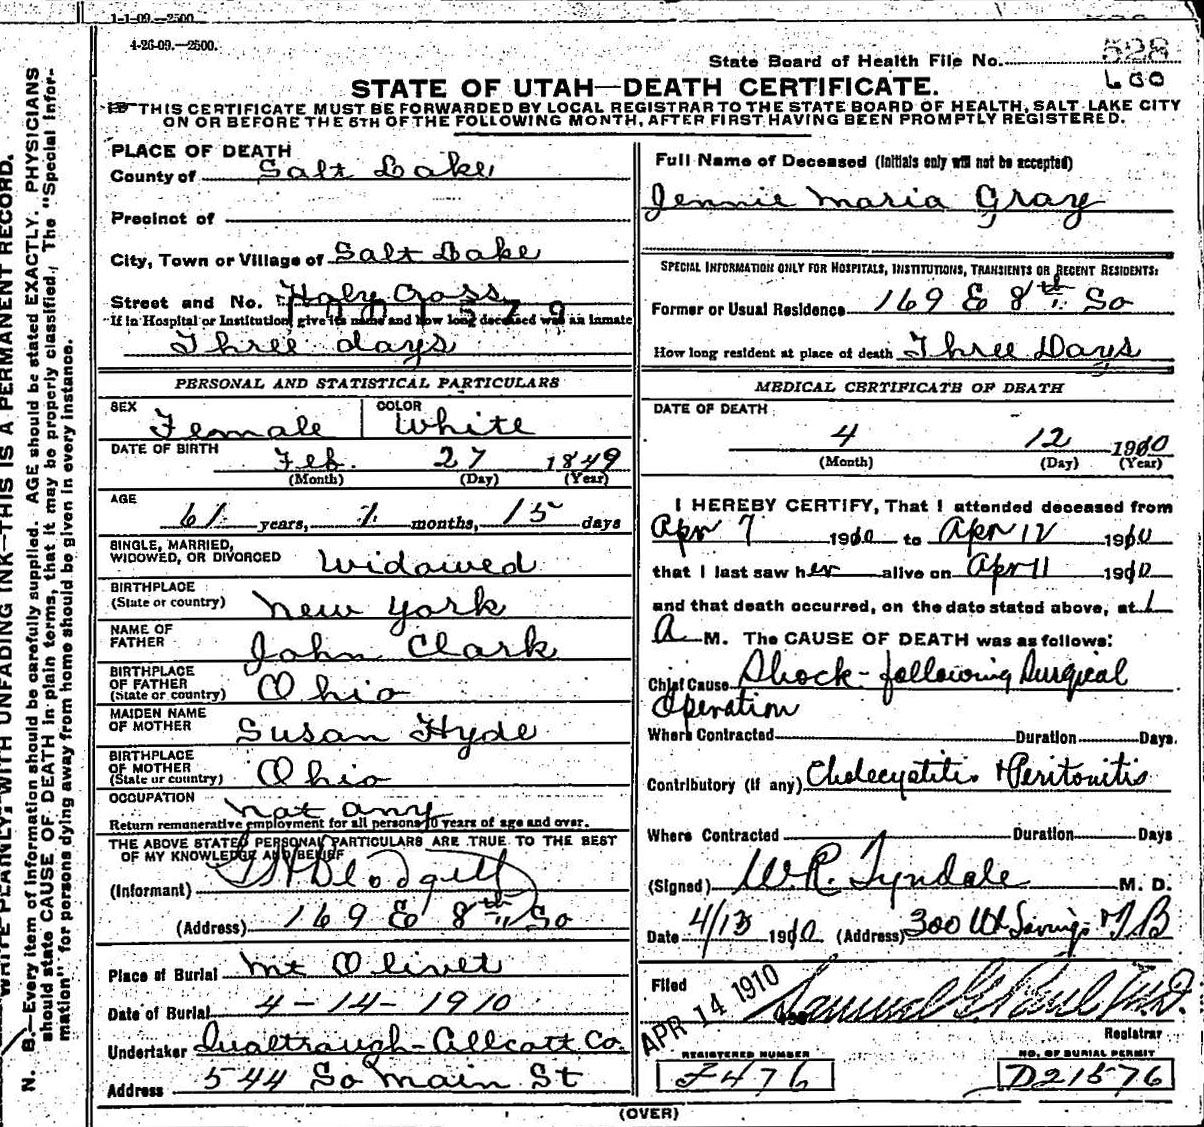 1-1-09.—2500.
4-26-09.—2500.
State Board of Health File No. 528
600
STATE OF UTAH—DEATH CERTIFICATE.
THIS CERTIFICATE MUST BE FORWARDED BY LOCAL REGISTRAR TO THE STATE BOARD OF HEALTH, SALT LAKE CITY
ON OR BEFORE THE 5TH OF THE FOLLOWING MONTH, AFTER FIRST HAVING BEEN PROMPTLY REGISTERED.
WRITE PLAINLY, WITH UNFADING INK—THIS IS A PERMANENT RECORD.
N. B.—Every item of information should be carefully supplied. AGE should be stated EXACTLY. PHYSICIANS
should state CAUSE OF DEATH in plain terms, that it may be properly classified. The "Special Infor-
mation" for persons dying away from home should be given in every instance.
PLACE OF DEATH
County of Salt Lake
Precinct of
City, Town or Village of Salt Lake
Street and No. Holy Cross
If in Hospital or Institution, give its name and how long deceased was an inmate
Three days
PERSONAL AND STATISTICAL PARTICULARS
SEX Female COLOR White
DATE OF BIRTH Feb. 27 1849
(Month) (Day) (Year)
AGE
61 years, 1 months, 15 days
SINGLE, MARRIED,
WIDOWED, OR DIVORCED Widowed
BIRTHPLACE
(State or country) New York
NAME OF
FATHER John Clark
BIRTHPLACE
OF FATHER
(State or country) Ohio
MAIDEN NAME
OF MOTHER Susan Hyde
BIRTHPLACE
OF MOTHER
(State or country) Ohio
OCCUPATION not any
Return remunerative employment for all persons 10 years of age and over.
THE ABOVE STATED PERSONAL PARTICULARS ARE TRUE TO THE BEST
OF MY KNOWLEDGE AND BELIEF
(Informant) Blodgett
(Address) 169 E 8th So
Place of Burial Mt Olivet
Date of Burial 4-14-1910
Undertaker Allcott Co.
Address 544 So Main St
Full Name of Deceased (Initials only will not be accepted)
Jennie Maria Gray
SPECIAL INFORMATION ONLY FOR HOSPITALS, INSTITUTIONS, TRANSIENTS OR RECENT RESIDENTS:
Former or Usual Residence 169 E 8th So
How long resident at place of death Three Days
MEDICAL CERTIFICATE OF DEATH
DATE OF DEATH
4 12 1910
(Month) (Day) (Year)
I HEREBY CERTIFY, That I attended deceased from
Apr 7 1910 to Apr 12 1910
that I last saw her alive on Apr 11 1910
and that death occurred, on the date stated above, at 1
A M. The CAUSE OF DEATH was as follows:
Chief Cause Shock-following Surgical
Operation
Where Contracted Duration Days.
Contributory (if any) Cholecystitis & Peritonitis
Where Contracted Duration Days
(Signed) W. R. Tyndale M. D.
Date 4/13 1910 (Address) 300 Ut Savings & T B
Filed APR 14 1910 Samuel G. Paul M.D.
Registrar
REGISTERED NUMBER
F476
NO. OF BURIAL PERMIT
D21576
(OVER)